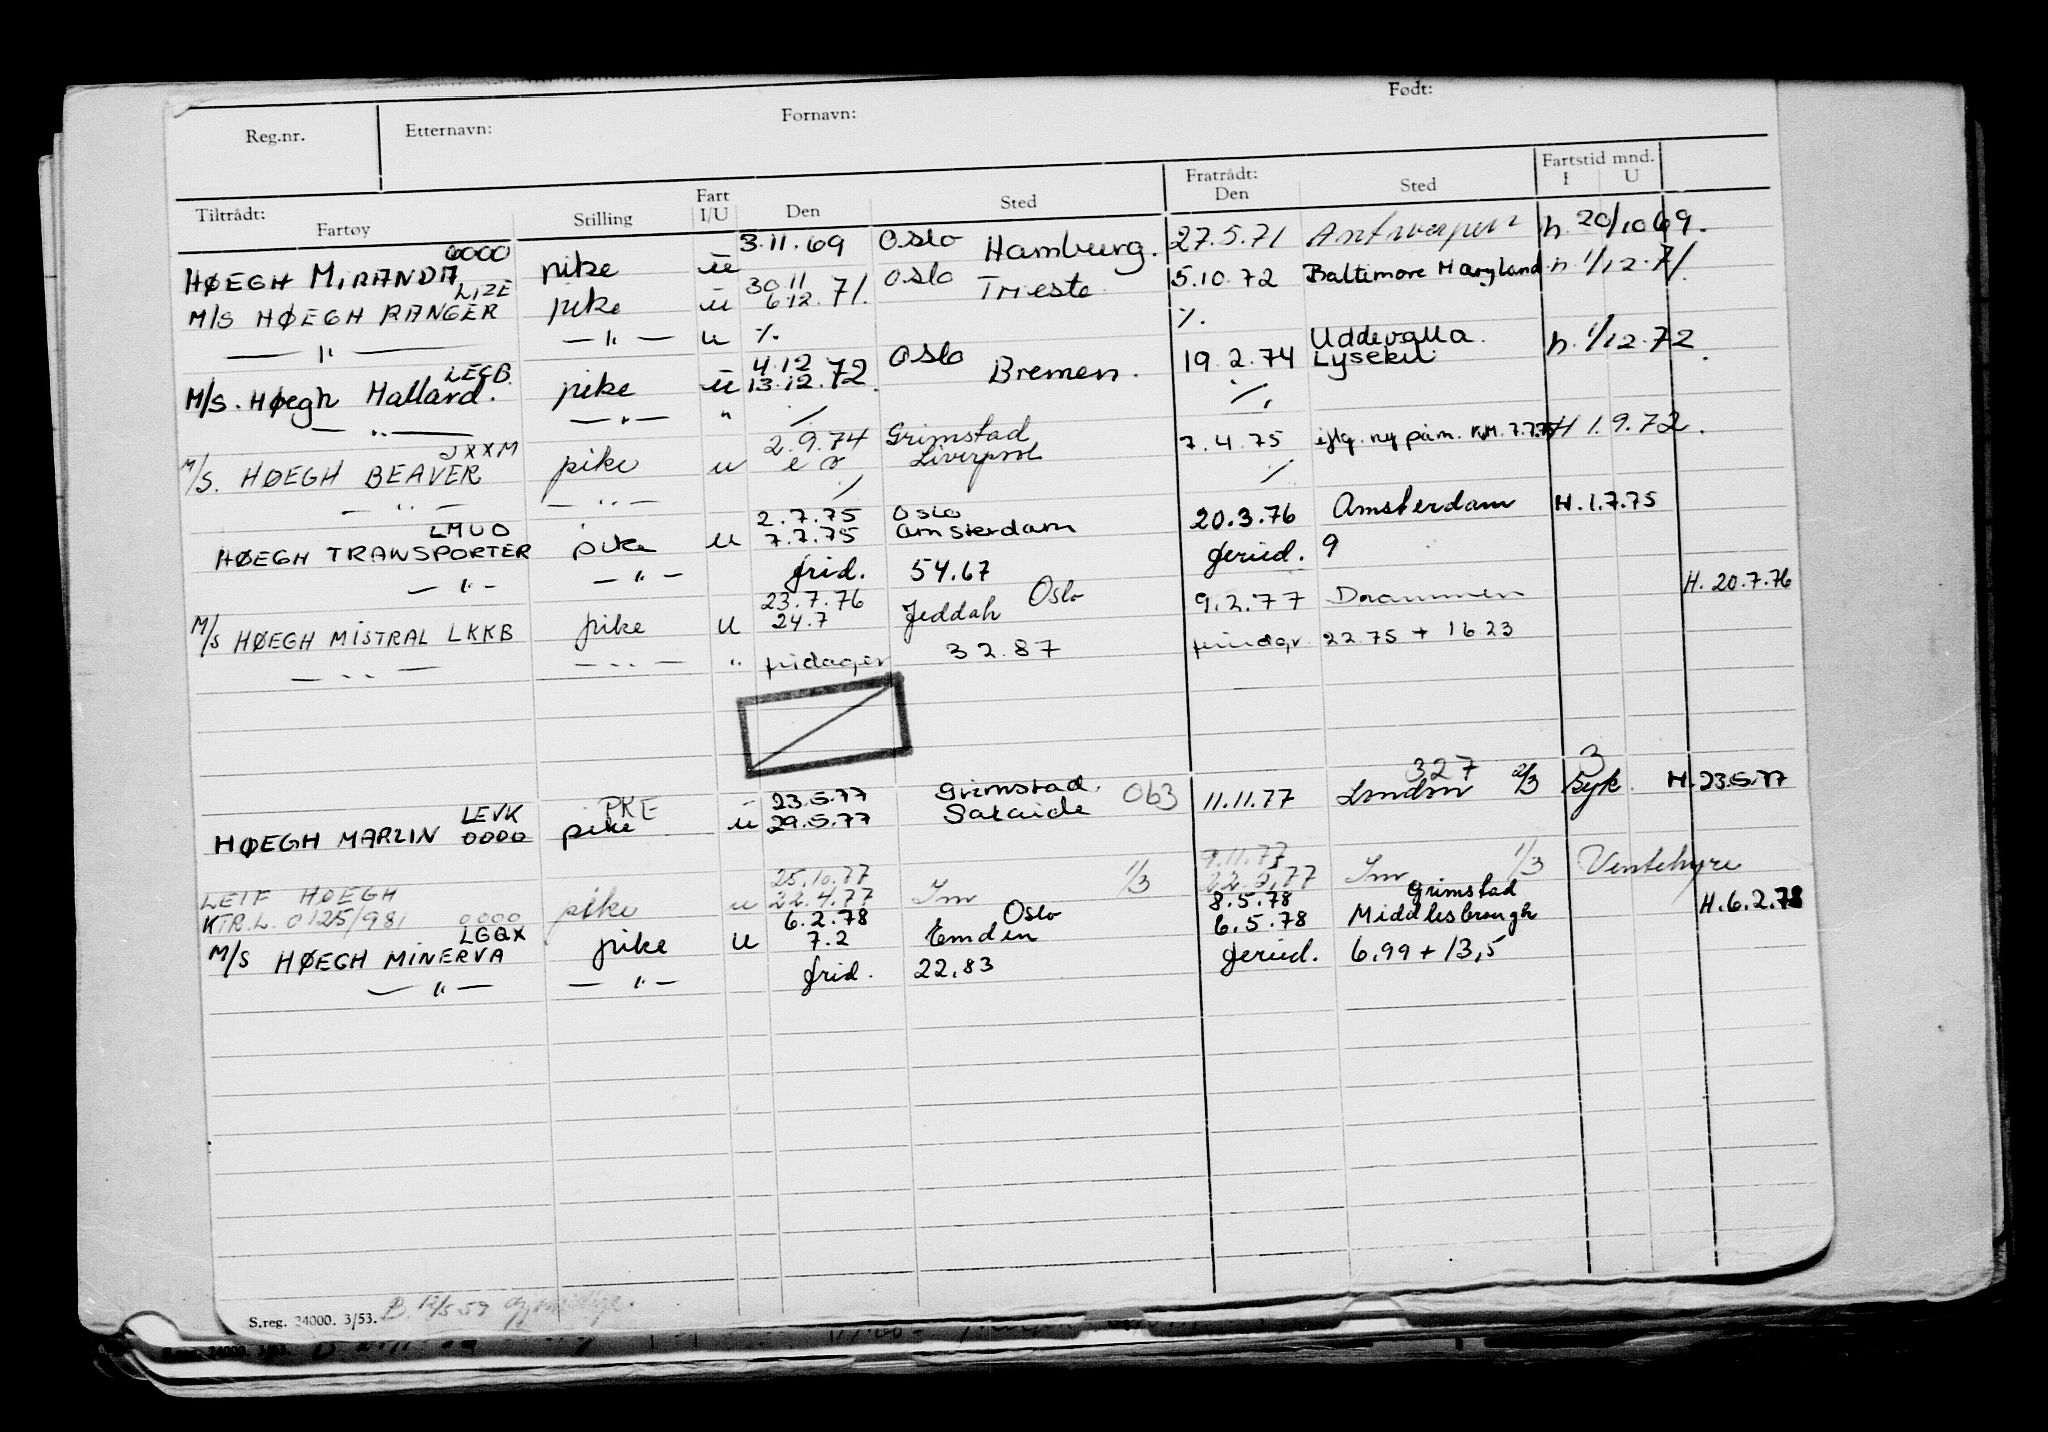 Reg.nr. Etternavn: Fornavn: Født:
Tiltrådt: Fartøy Stilling Fart I/U Den Sted Fratrådt: Den Sted Fartstid mnd. I U
HØEGH MIRANDA 0000 pike u 3.11.69 Oslo Hamburg. 27.5.71 Antwerpen h. 20/10 69.
M/S HØEGH RANGER LIZE pike u 30.11 6.12.71. Oslo Trieste 5.10.72 Baltimore Maryland h 1/12.71.
— " — — " — u ./. ./.
M/S. Høegh Mallard. LEGB. pike u 4.12 13.12.72. Oslo Bremen. 19.2.74 Uddevalla. Lysekil h. 1/12.72.
— " — — " — " / /.
M/S. HØEGH BEAVER JXXM pike u 2.9.74 Grimstad Liverpool 7.4.75 H 1.9.72.
— " — — " — / /
HØEGH TRANSPORTER LMUO pike u 2.7.75 7.7.75 Oslo Amsterdam 20.3.76 Amsterdam H.1.7.75
— " — — " — frid. 54.67 feried. 9
M/S HØEGH MISTRAL LKKB pike u 23.7.76 24.7 Oslo Jeddah 9.2.77 Drammen H. 20.7.76
— " — — " — " fridager 32.87 22.75 + 16.23
HØEGH MARLIN LEVK 0000 PKE pike u 23.5.77 29.5.77 Grimstad. 063 11.11.77 327 London 2/3 3 Syk. H. 23.5.77
LEIF HOEGH pike u 25.10.77 22.4.77 1/3 1/3 Ventehyre
KTR.L. 0125/981 0000
M/S HØEGH MINERVA LGQX pike u 6.2.78 7.2 Oslo Emden 8.5.78 6.5.78 Grimstad Middlesbrough H.6.2.78
— " — — " — frid. 22.83 feried. 6,99 + 13,5
S.reg. 24000. 3/53.